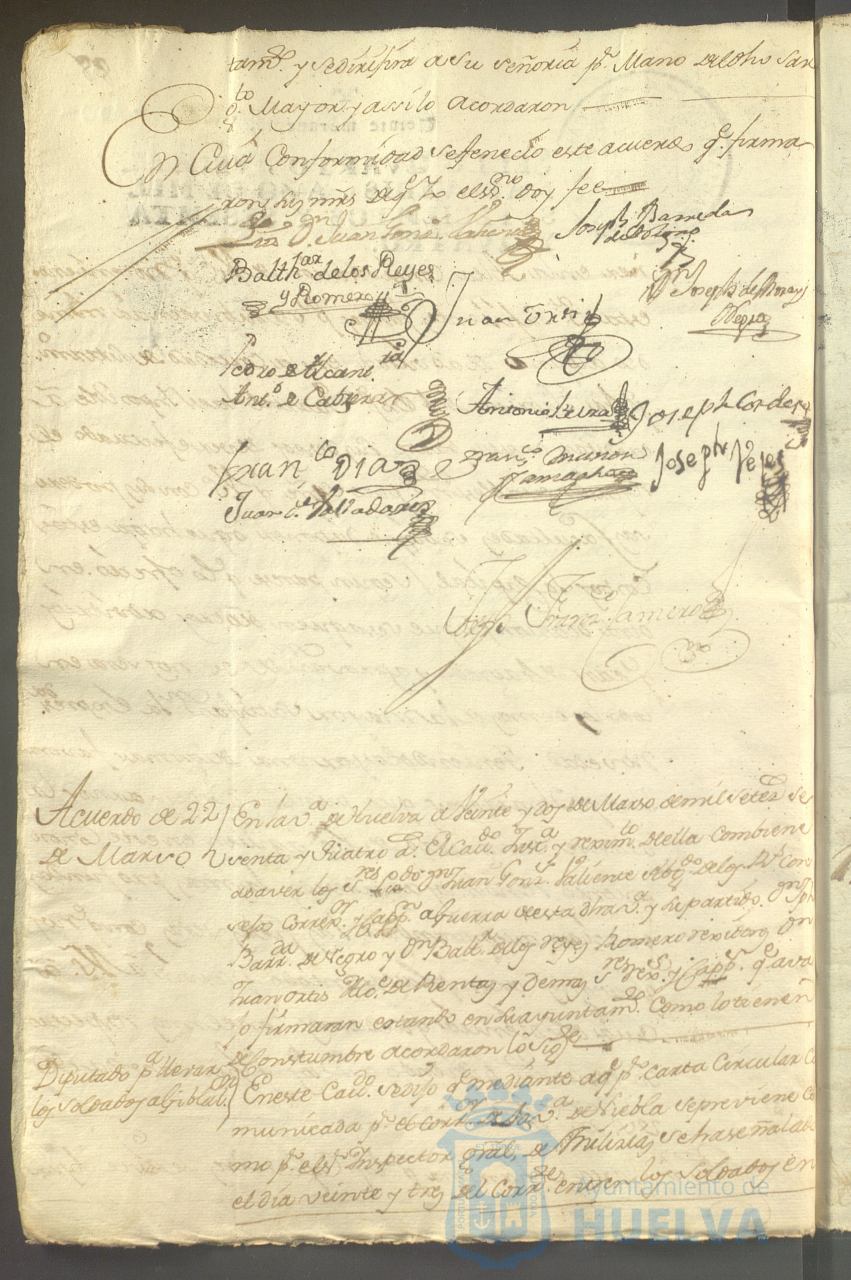 tamto. y se dirijira a Su Señoria pr. Mano de dho Sar
to Mayor y assilo acordaron
En Cuia Conformidad se fenecio este acuerdo q. firma
ron sus mrs de q. Yo el ssno. doy fee
Lizdo. Dn. Juan Gonz. Valiente
Joseph Barreda
Balthsar. de los Reyes
y Romero
Juan Ortis
Dn. Joseph de
Pedro de Alcanta
Anto. de Cabrera
Antonio
Joseph Cordero
Franco. Diaz
Franco. Muñoz
Joseph Veles
Juan Valladares
Franco. Camero
Acuerdo de 22
de Marso
En la Va. de Huelva a Veinte y dos de Marso de mil setez. se
senta y quatro as. El Cavdo. Justa. y reximto. della combiene
a saver los sres. Lizdo. Dn. Juan Gonz. Valiente Abogdo de los Rs. Con
sejos Correxor. y Cappn. a Guerra de esta dha Va. y su partido Dn. Jph
Barrda. de Negro y Dn. Baltr. de los reyes Romero rexidores Dn
Juan ortis Alce. de Rentas y demas sres. rexes. y Cappres. q. ava
jo firmaran estando en su ayuntamto. Como lo tienen
de Constumbre acordaron lo sigte.
Diputado pa. llevar
los soldados a Gibl.
En este Cavdo. se dijo q. mediante a q. pr. carta Circular Co
municada pr. el Corror. de la Va. de Niebla se previene co
mo pr. el sr. Inspector Gral, de Milizias se ha señalado
el dia veinte y tres del Corrte. entren los soldados en
Ayuntamiento de
HUELVA